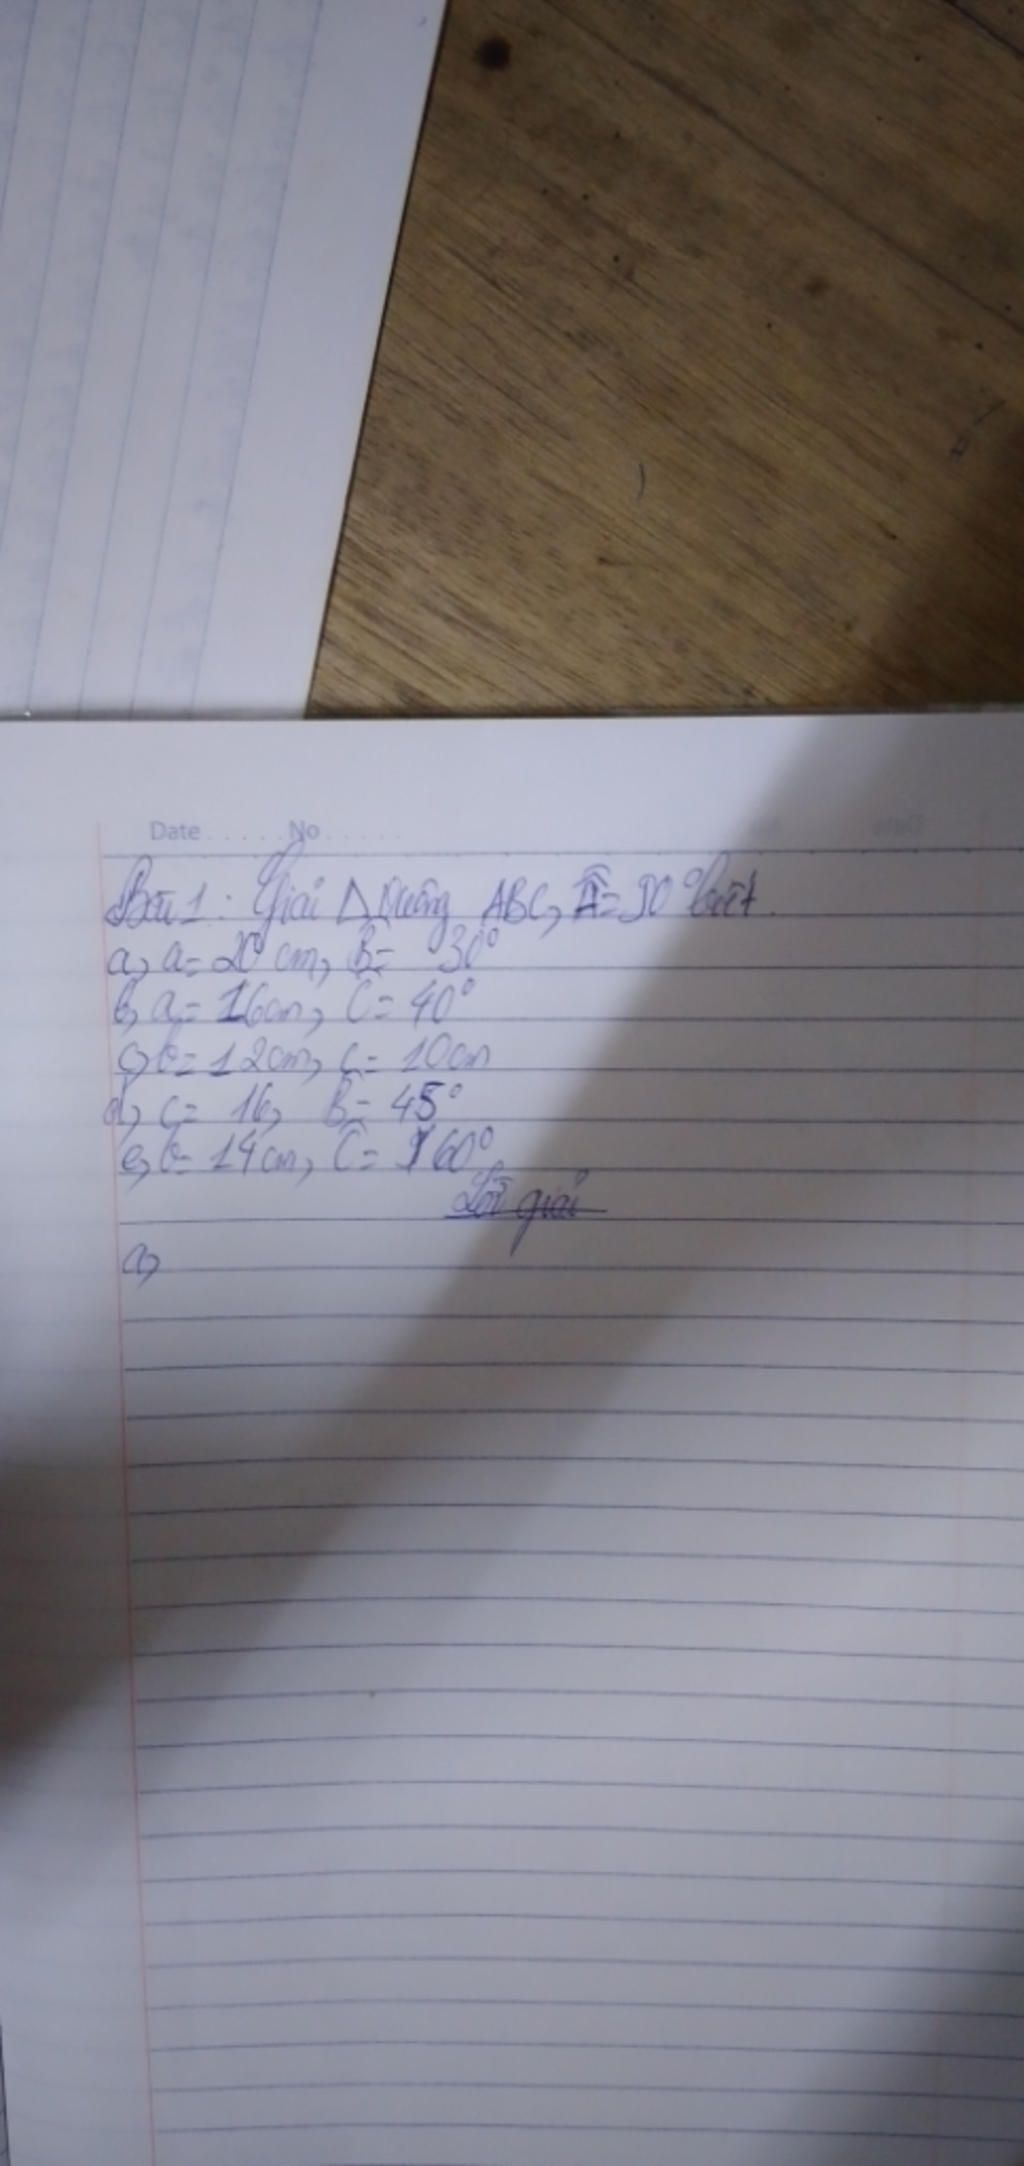 Date ...... No ......
Bài 1: Giải Δ vuông ABC, Â = 90° biết
a, a = 20 cm, B̂ = 30°
b, a = 16cm, Ĉ = 40°
c, b = 12cm, c = 10cm
d, c = 16, B̂ = 45°
e, b = 14cm, Ĉ = 60°
Lời giải
a,